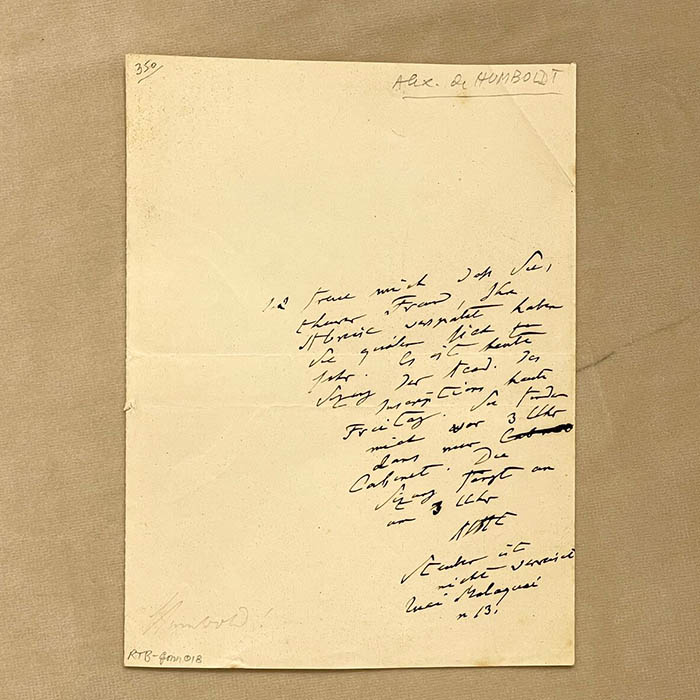 350
Alex. de HUMBOLDT
freue mich daß Sie,
theurer Freund, Ihre
Abreise verspätet haben
Sie quälen sich zu
sehr. Es ist heute
Sizung der Acad. des
Inscriptions heute
Freitag. Sie finden
mich vor 3 Uhr
dans mein
Cabinet. Die
Sizung fängt an
um 3 Uhr
AHt
ist
nicht verreist
Malaquai
n 13.
Humboldt
RTB-